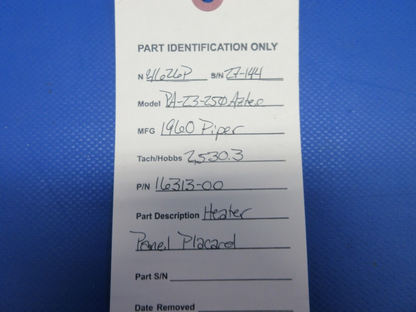 PART IDENTIFICATION ONLY
N 4626P S/N 27-144
Model PA-23-250 Aztec
MFG 1960 Piper
Tach/Hobbs 2,530.3
P/N 16313-00
Part Description Heater
Panel Placard
Part S/N
Date Removed